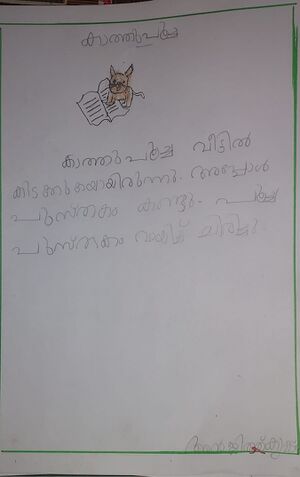 കാത്തുപൂച്ച
കാത്തുപൂച്ച വീട്ടിൽ
കിടക്കുകയായിരുന്നു. അപ്പോൾ
പുസ്തകം കണ്ടു. പൂച്ച
പുസ്തകം വായിച്ച് ചിരിച്ചു.